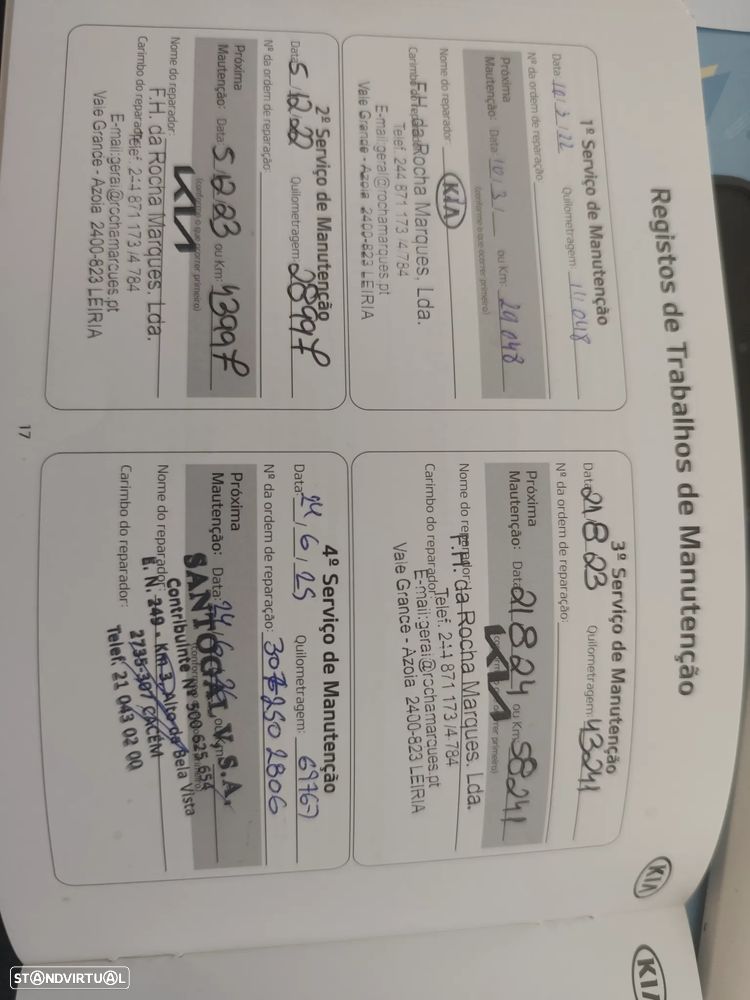 Registos de Trabalhos de Manutenção
1º Serviço de Manutenção
Data: 10 / 3 / 22 Quilometragem: 14 048
Nº da ordem de reparação
Próxima
Mautenção: Data: 10 / 3 / ou Km: 29 048
(conforme o que ocorrer primeiro)
Nome do reparador
KIA
Carimbo do reparador
F.H. da Rocha Marques, Lda.
Telef. 244 871 173 /4 784
E-mail:geral@rochamarques.pt
Vale Grande - Azoia 2400-823 LEIRIA
2º Serviço de Manutenção
Data: 5 12 22 Quilometragem: 28997
Nº da ordem de reparação:
Próxima
Mautenção: Data: 5 12 23 ou Km: 43997
(conforme o que ocorrer primeiro)
KIA
Nome do reparador:
F.H. da Rocha Marques. Lda.
Carimbo do reparador:
Telef. 244 871 173 /4 784
E-mail:geral@rochamarques.pt
Vale Grande - Azoia 2400-823 LEIRIA
17
3º Serviço de Manutenção
Data: 21 8 23 Quilometragem: 43241
Nº da ordem de reparação:
Próxima
Mautenção: Data: 21 8 24 ou Km: 58241
KIA
Nome do reparador
F.H. da Rocha Marques. Lda.
Carimbo do reparador:
Telef. 244 871 173 /4 784
E-mail:geral@rochamarques.pt
Vale Grande - Azoia 2400-823 LEIRIA
4º Serviço de Manutenção
Data: 24 / 6 / 25 Quilometragem: 69767
Nº da ordem de reparação: 3072502806
Próxima
Mautenção: Data: 24/6/26 ou Km
SANTOGAL V, S.A.
Contribuinte Nº 500 625 654
Nome do reparador:
E. N. 249 - Km 3, Alto da Bela Vista
2735-307 CACÉM
Carimbo do reparador:
Telef. 21 043 02 00
KIA
KIA
STANDVIRTUAL